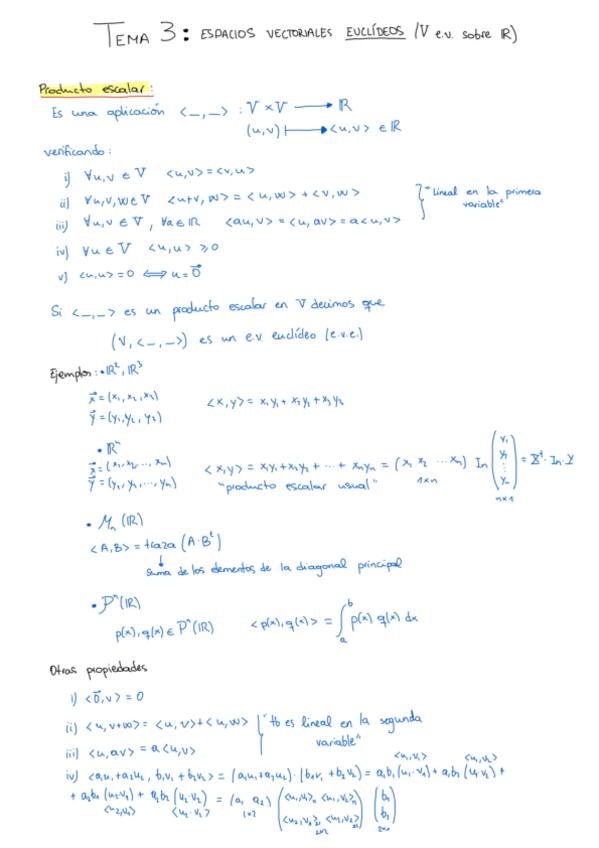 TEMA 3: ESPACIOS VECTORIALES EUCLÍDEOS (V e.v. sobre ℝ)
Producto escalar:
Es una aplicación <_,_> : V × V ⟶ ℝ
(u,v) ⟼ <u,v> ∈ ℝ
verificando:
i) ∀u,v ∈ V <u,v> = <v,u>
ii) ∀u,v,w ∈ V <u+v, w> = <u,w> + <v,w>
iii) ∀u,v ∈ V, ∀a ∈ ℝ <au,v> = <u,av> = a<u,v>
"lineal en la primera
variable"
iv) ∀u ∈ V <u,u> ⩾ 0
v) <u,u> = 0 ⟺ u = 0⃗
Si <_,_> es un producto escalar en V decimos que
(V, <_,_>) es un e.v. euclídeo (e.v.e.)
Ejemplos: • ℝ², ℝ³
x⃗ = (x₁, x₂, x₃)
y⃗ = (y₁, y₂, y₃)
<x,y> = x₁y₁ + x₂y₂ + x₃y₃
• ℝⁿ
x⃗ = (x₁, x₂, ..., xₙ)
y⃗ = (y₁, y₂, ..., yₙ)
<x,y> = x₁y₁ + x₂y₂ + ... + xₙyₙ = (x₁ x₂ ... xₙ) Iₙ (y₁ y₂ ⋮ yₙ) = Xᵗ · Iₙ · Y
"producto escalar usual" 1×n n×1
• Mₙ(ℝ)
<A,B> = traza (A·Bᵗ)
↓
suma de los elementos de la diagonal principal
• Pⁿ(ℝ)
p(x), q(x) ∈ Pⁿ(ℝ) <p(x), q(x)> = ∫ₐᵇ p(x) q(x) dx
Otras propiedades
i) <0⃗,v> = 0
ii) <u, v+w> = <u,v> + <u,w>
iii) <u, av> = a<u,v>
"tb es lineal en la segunda
variable"
<u₁,v₁> <u₁,v₂>
iv) <a₁u₁+a₂u₂, b₁v₁+b₂v₂> = (a₁u₁+a₂u₂)·(b₁v₁+b₂v₂) = a₁b₁(u₁·v₁) + a₁b₂(u₁·v₂) +
+ a₂b₁(u₂·v₁) + a₂b₂(u₂·v₂) = (a₁ a₂) (<u₁,v₁>₁₁ <u₁,v₂>₁₂ <u₂,v₁>₂₁ <u₂,v₂>₂₂) (b₁ b₂)
<u₂,v₁> <u₂·v₂> 1×2 2×2 2×1